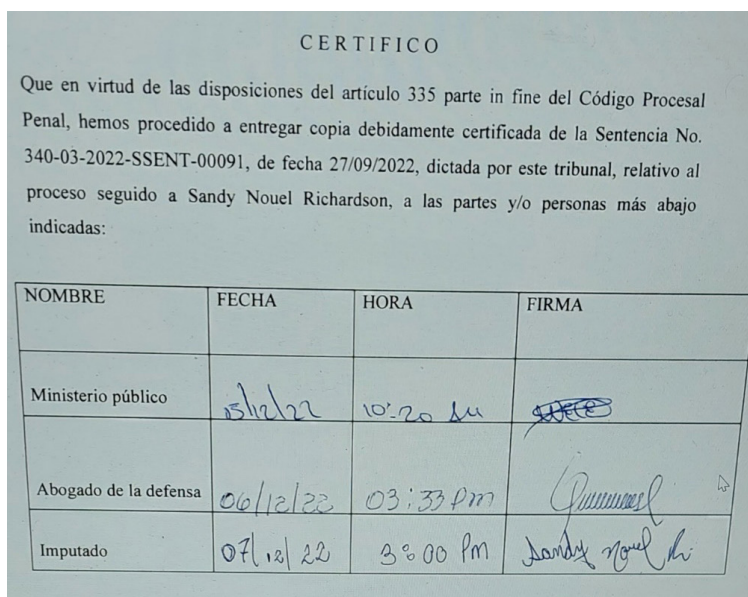 CERTIFICO
Que en virtud de las disposiciones del artículo 335 parte in fine del Código Procesal
Penal, hemos procedido a entregar copia debidamente certificada de la Sentencia No.
340-03-2022-SSENT-00091, de fecha 27/09/2022, dictada por este tribunal, relativo al
proceso seguido a Sandy Nouel Richardson, a las partes y/o personas más abajo
indicadas:
NOMBRE FECHA HORA FIRMA
Ministerio público 05/12/22 10:20
Abogado de la defensa 06/12/22 03:33 Pm
Imputado 07/12/22 3:00 Pm Sandy Nouel R.